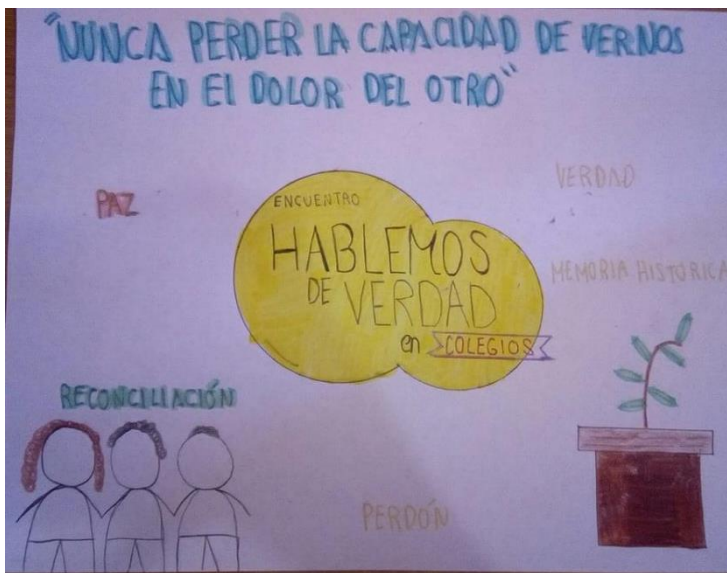 "NUNCA PERDER LA CAPACIDAD DE VERNOS
EN El DOLOR DEL OTRO"
PAZ
VERDAD
ENCUENTRO
HABLEMOS
DE VERDAD
en COLEGIOS
MEMORIA HISTÓRICA
RECONCILIACIÓN
PERDÓN